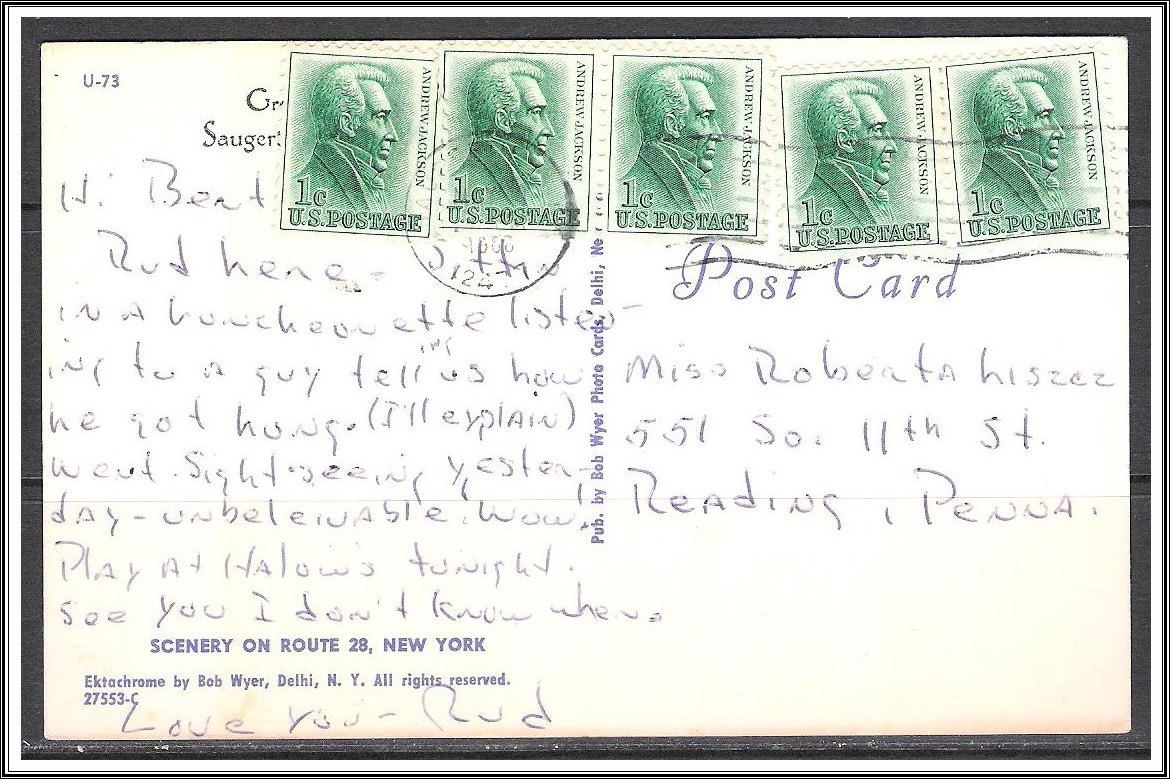 U-73
Gr
Sauger
ANDREW JACKSON
1c
U.S. POSTAGE
ANDREW JACKSON
1c
U.S. POSTAGE
ANDREW JACKSON
1c
U.S. POSTAGE
ANDREW JACKSON
1c
U.S. POSTAGE
ANDREW JACKSON
1c
U.S. POSTAGE
Hi Bert
Rud here - Sittin
in A Luncheonette listen-
ing to A guy telling us how
he got hung. (I'll explain)
Went Sight-seeing yester-
day - unbeleivable. Wow.
Play At Halow's tonight.
See you I don't know when.
SCENERY ON ROUTE 28, NEW YORK
Ektachrome by Bob Wyer, Delhi, N. Y. All rights reserved.
27553-C
Love You - Rud
Pub. by Bob Wyer Photo Cards, Delhi, Ne
Post Card
Miss Roberta Liszcz
551 So. 11th St.
Reading, Penna.